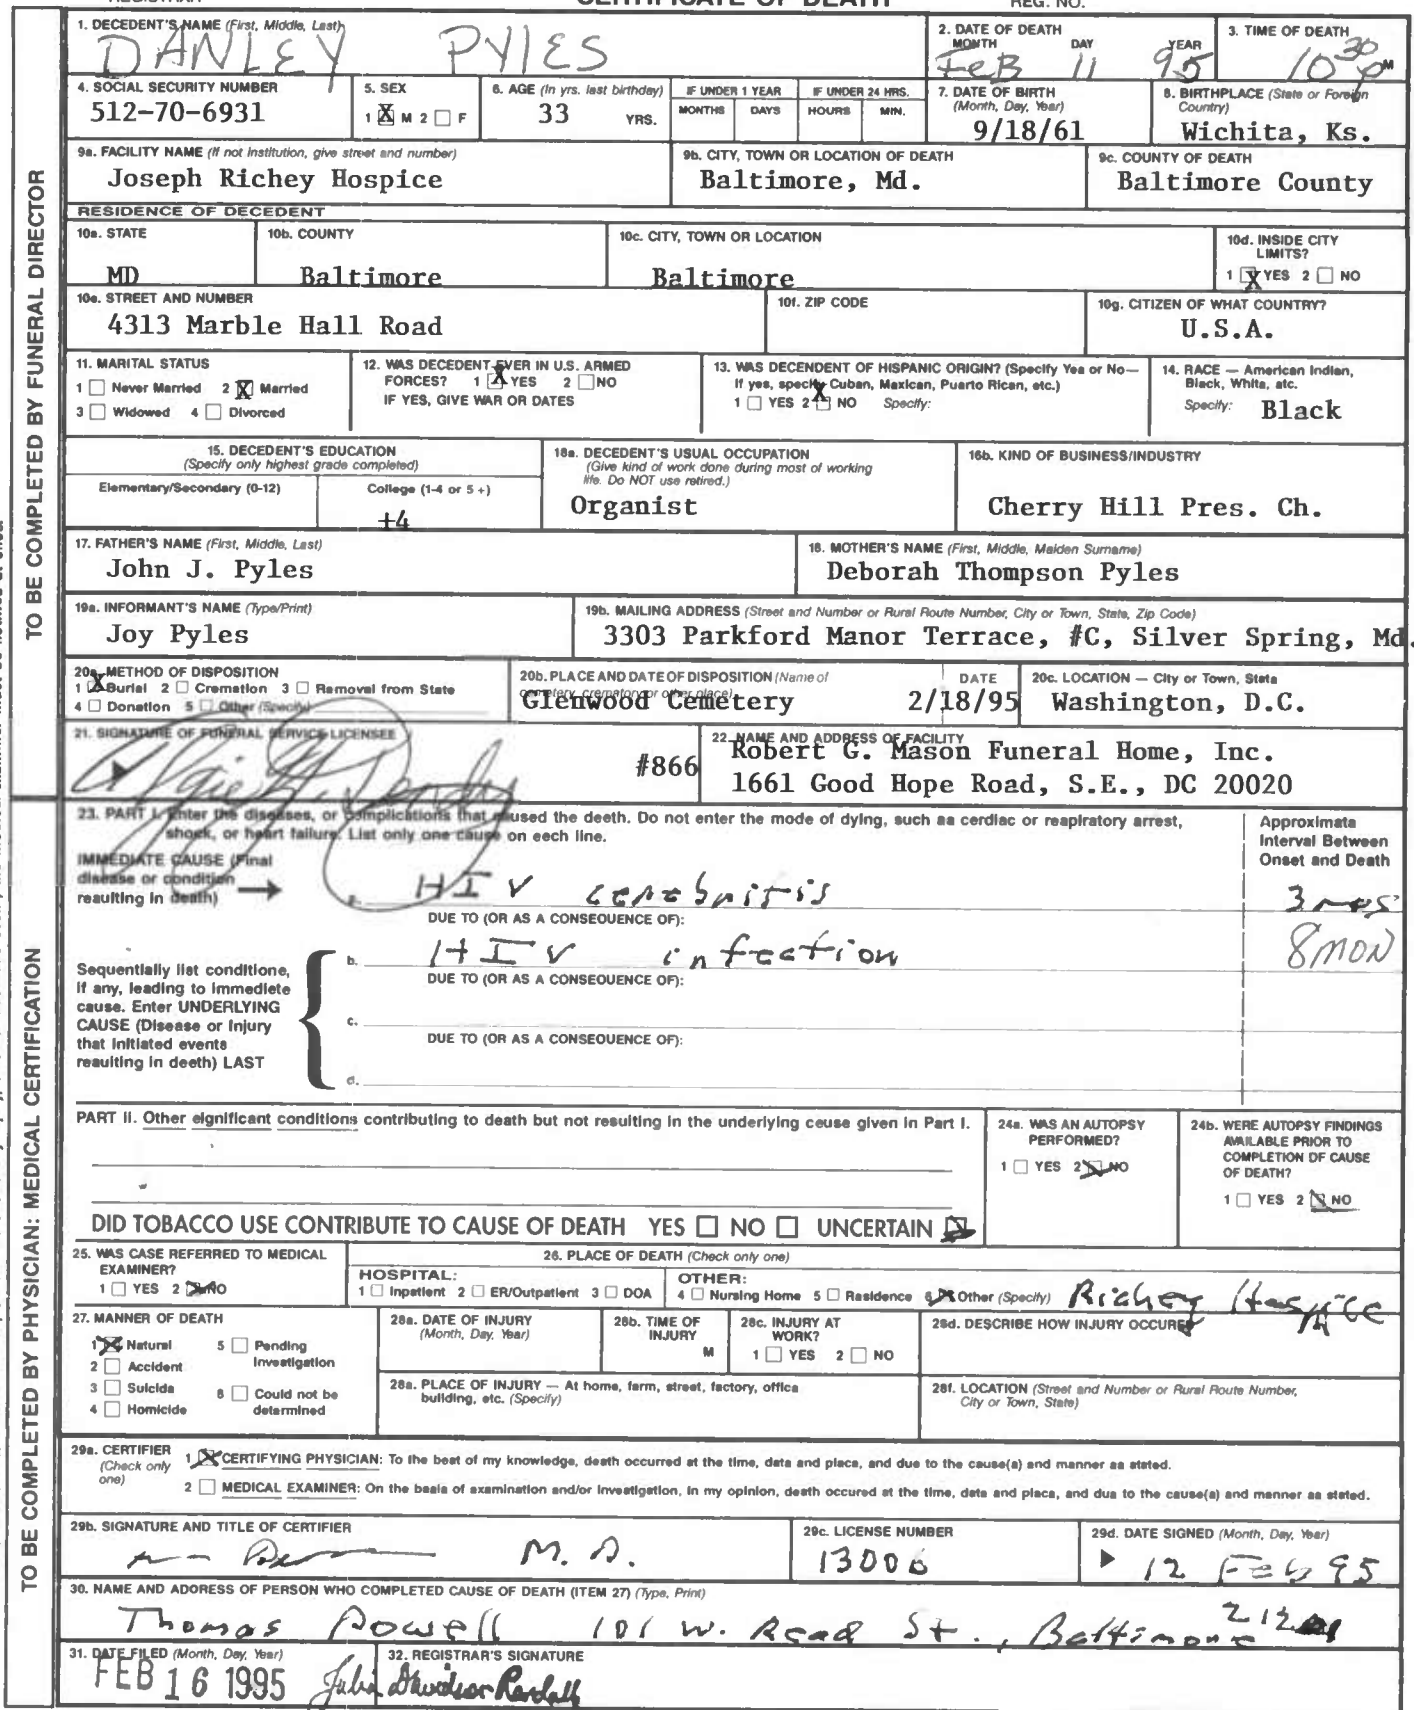 CERTIFICATE OF DEATH
REGISTRAR REG. NO.
TO BE COMPLETED BY FUNERAL DIRECTOR
1. DECEDENT'S NAME (First, Middle, Last)
DANLEY PYLES
2. DATE OF DEATH
MONTH DAY YEAR
FEB 11 95
3. TIME OF DEATH
10 30 P M
4. SOCIAL SECURITY NUMBER
512-70-6931
5. SEX
1 X M 2 F
6. AGE (In yrs. last birthday)
33 YRS.
IF UNDER 1 YEAR
MONTHS DAYS
IF UNDER 24 HRS.
HOURS MIN.
7. DATE OF BIRTH
(Month, Day, Year)
9/18/61
8. BIRTHPLACE (State or Foreign
Country)
Wichita, Ks.
9a. FACILITY NAME (If not institution, give street and number)
Joseph Richey Hospice
9b. CITY, TOWN OR LOCATION OF DEATH
Baltimore, Md.
9c. COUNTY OF DEATH
Baltimore County
RESIDENCE OF DECEDENT
10a. STATE
MD
10b. COUNTY
Baltimore
10c. CITY, TOWN OR LOCATION
Baltimore
10d. INSIDE CITY
LIMITS?
1 X YES 2 NO
10e. STREET AND NUMBER
4313 Marble Hall Road
10f. ZIP CODE
10g. CITIZEN OF WHAT COUNTRY?
U.S.A.
11. MARITAL STATUS
1 Never Married 2 X Married
3 Widowed 4 Divorced
12. WAS DECEDENT EVER IN U.S. ARMED
FORCES? 1 X YES 2 NO
IF YES, GIVE WAR OR DATES
13. WAS DECENDENT OF HISPANIC ORIGIN? (Specify Yes or No—
If yes, specify Cuban, Mexican, Puerto Rican, etc.)
1 YES 2 X NO Specify:
14. RACE — American Indian,
Black, White, etc.
Specify: Black
15. DECEDENT'S EDUCATION
(Specify only highest grade completed)
Elementary/Secondary (0-12) College (1-4 or 5+)
+4
16a. DECEDENT'S USUAL OCCUPATION
(Give kind of work done during most of working
life. Do NOT use retired.)
Organist
16b. KIND OF BUSINESS/INDUSTRY
Cherry Hill Pres. Ch.
17. FATHER'S NAME (First, Middle, Last)
John J. Pyles
18. MOTHER'S NAME (First, Middle, Maiden Surname)
Deborah Thompson Pyles
19a. INFORMANT'S NAME (Type/Print)
Joy Pyles
19b. MAILING ADDRESS (Street and Number or Rural Route Number, City or Town, State, Zip Code)
3303 Parkford Manor Terrace, #C, Silver Spring, Md.
20a. METHOD OF DISPOSITION
1 X Burial 2 Cremation 3 Removal from State
4 Donation 5 Other (Specify)
20b. PLACE AND DATE OF DISPOSITION (Name of
cemetery, crematory or other place)
DATE
Glenwood Cemetery 2/18/95
20c. LOCATION — City or Town, State
Washington, D.C.
21. SIGNATURE OF FUNERAL SERVICE LICENSEE
#866
22. NAME AND ADDRESS OF FACILITY
Robert G. Mason Funeral Home, Inc.
1661 Good Hope Road, S.E., DC 20020
TO BE COMPLETED BY PHYSICIAN: MEDICAL CERTIFICATION
23. PART I. Enter the diseases, or complications that caused the death. Do not enter the mode of dying, such as cardiac or respiratory arrest,
shock, or heart failure. List only one cause on each line.
Approximate
Interval Between
Onset and Death
IMMEDIATE CAUSE (Final
disease or condition
resulting in death)
a. HIV cerebritis 3 mos
DUE TO (OR AS A CONSEQUENCE OF):
b. HIV infection 8 MON
DUE TO (OR AS A CONSEQUENCE OF):
Sequentially list conditions,
if any, leading to immediate
cause. Enter UNDERLYING
CAUSE (Disease or injury
that initiated events
resulting in death) LAST
c.
DUE TO (OR AS A CONSEQUENCE OF):
d.
PART II. Other significant conditions contributing to death but not resulting in the underlying cause given in Part I.
24a. WAS AN AUTOPSY
PERFORMED?
1 YES 2 NO
24b. WERE AUTOPSY FINDINGS
AVAILABLE PRIOR TO
COMPLETION OF CAUSE
OF DEATH?
1 YES 2 NO
DID TOBACCO USE CONTRIBUTE TO CAUSE OF DEATH YES NO UNCERTAIN
25. WAS CASE REFERRED TO MEDICAL
EXAMINER?
1 YES 2 NO
26. PLACE OF DEATH (Check only one)
HOSPITAL:
1 Inpatient 2 ER/Outpatient 3 DOA
OTHER:
4 Nursing Home 5 Residence 6 Other (Specify) Richey Hospice
27. MANNER OF DEATH
1 Natural 5 Pending
Investigation
2 Accident
3 Suicide 6 Could not be
determined
4 Homicide
28a. DATE OF INJURY
(Month, Day, Year)
28b. TIME OF
INJURY
M
28c. INJURY AT
WORK?
1 YES 2 NO
28d. DESCRIBE HOW INJURY OCCURED
28e. PLACE OF INJURY — At home, farm, street, factory, office
building, etc. (Specify)
28f. LOCATION (Street and Number or Rural Route Number,
City or Town, State)
29a. CERTIFIER
(Check only
one)
1 CERTIFYING PHYSICIAN: To the best of my knowledge, death occurred at the time, date and place, and due to the cause(s) and manner as stated.
2 MEDICAL EXAMINER: On the basis of examination and/or investigation, in my opinion, death occured at the time, date and place, and due to the cause(s) and manner as stated.
29b. SIGNATURE AND TITLE OF CERTIFIER
M.D.
29c. LICENSE NUMBER
13006
29d. DATE SIGNED (Month, Day, Year)
12 Feb 95
30. NAME AND ADDRESS OF PERSON WHO COMPLETED CAUSE OF DEATH (ITEM 27) (Type, Print)
Thomas Powell 101 W. Read St., Baltimore
31. DATE FILED (Month, Day, Year)
FEB 16 1995
32. REGISTRAR'S SIGNATURE
Julia Davidson Randall